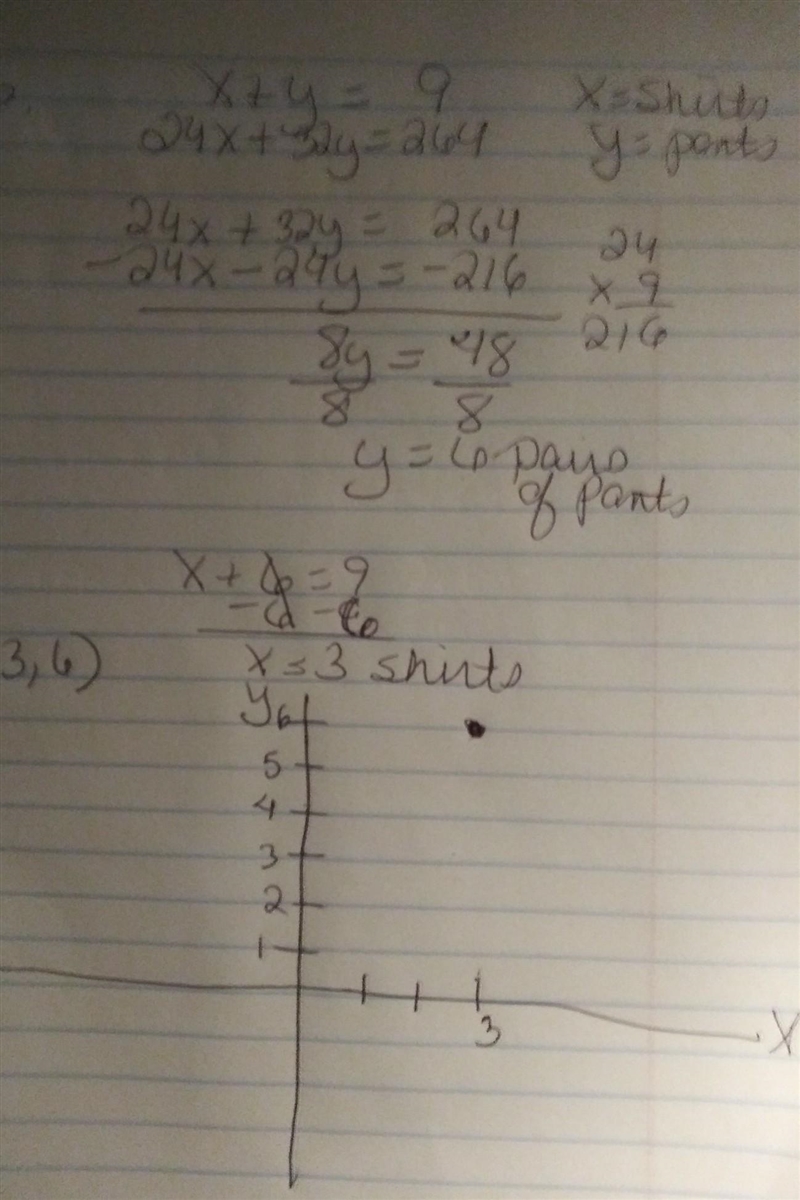 x + y = 9 x = shirts
24x + 32y = 264 y = pants
24x + 32y = 264 24
-24x - 24y = -216 x 9
8y = 48 216
8 8
y = 6 pairs
of pants
x + 6 = 9
-6 -6
3,6) x = 3 shirts
y 6
5
4
3
2
1
3
X